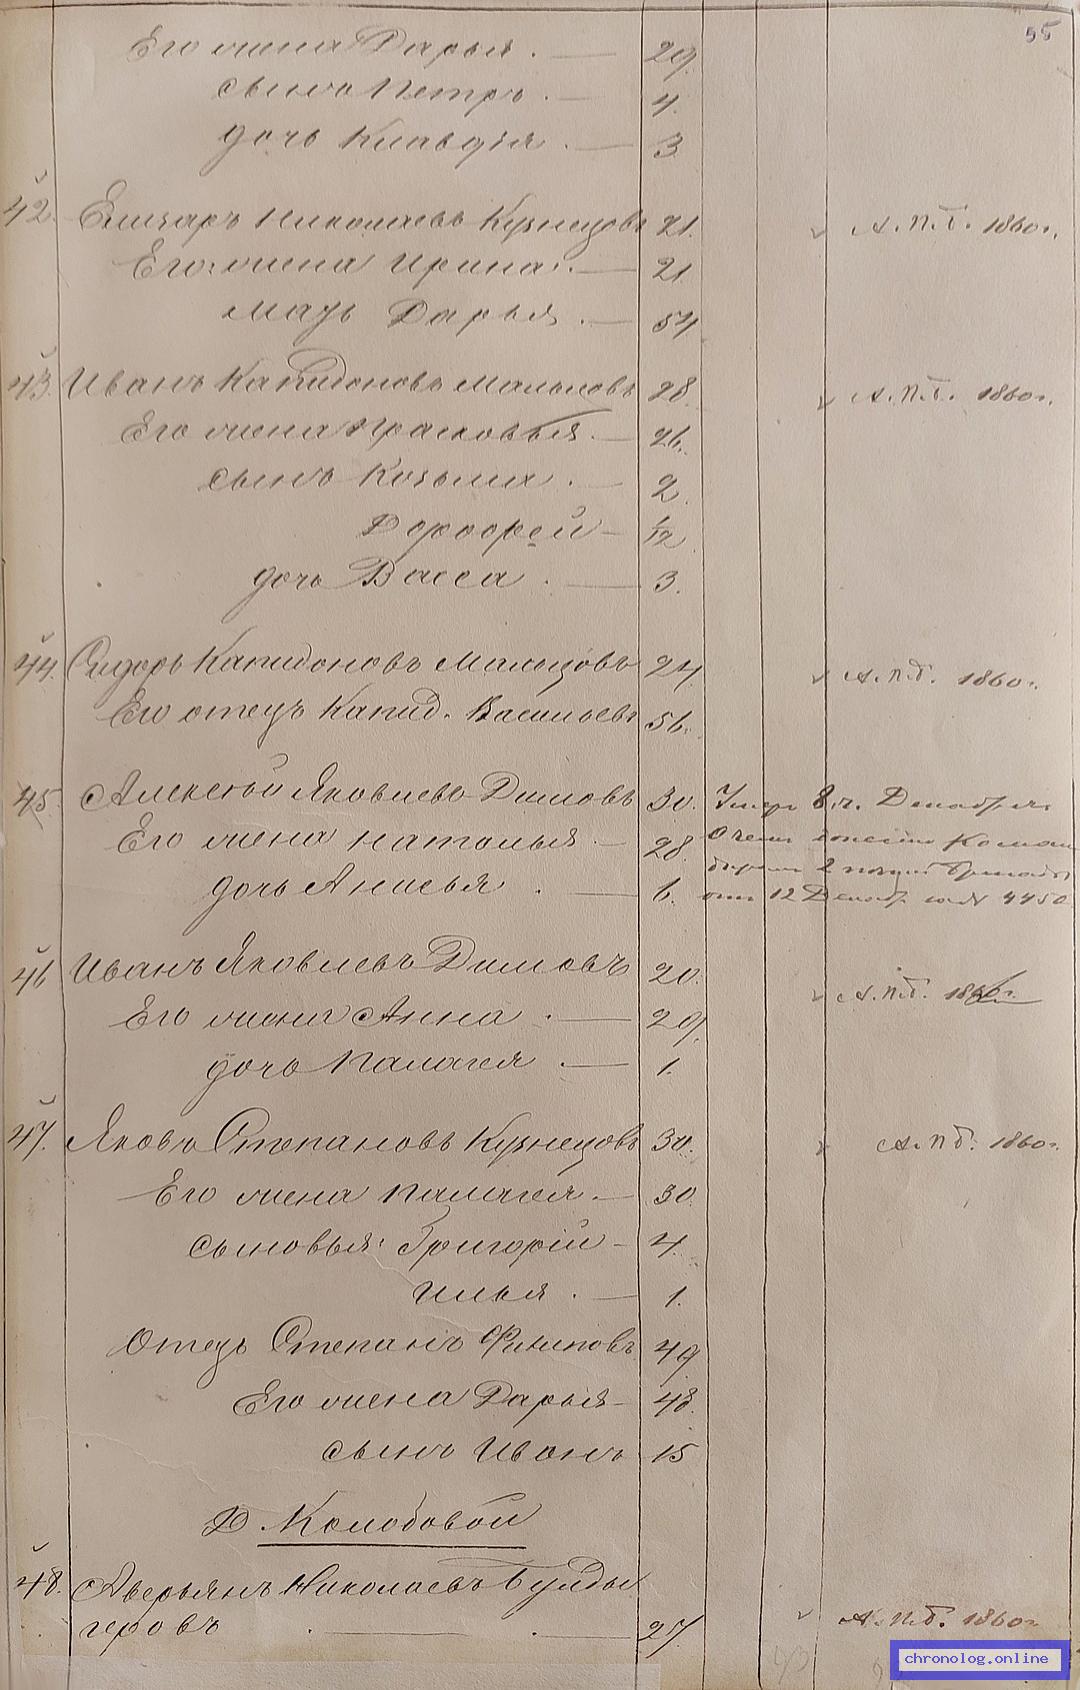 55
Его жена Дарья. — 29.
сынъ Петръ. — 4.
дочь Клавдiя. — 3
42. Елизаръ Николаевъ Кузнецовъ 21. А. П. б. 1860 г.
Его жена Ирина. — 21
мать Дарья. — 54.
43. Иванъ Капидоновъ Мальцовъ 28. А. П. б. 1860 г.
Его жена Прасковья. — 26.
сынъ Козьма. — 2
Дорофей — 1/12
дочь Васса. — 3.
44. Сидоръ Капидоновъ Мальцовъ 24. А. П. б. 1860 г.
Его отецъ Капид. Васильевъ 56.
45. Алексѣй Яковлевъ Димовъ 30. Умеръ 8. Декабря
Его жена Наталья. — 28.
дочь Анисья. — 6.
12 Декабр. 4450
46 Иванъ Яковлевъ Димовъ 20. А. П. б.
Его жена Анна. — 29.
дочь Палагея. — 1.
47. Яковъ Степановъ Кузнецовъ 30. А. П. б. 1860 г.
Его жена Палагея. — 30.
сыновья: Григорiй — 4.
Илья. — 1.
Отецъ Степанъ Филиповъ 49
Его жена Дарья — 48.
сынъ Иванъ 15
Д. Колобовой
48. Аверьянъ Николаевъ Булды
геровъ — 27. А. П. б. 1860 г.
chronolog.online